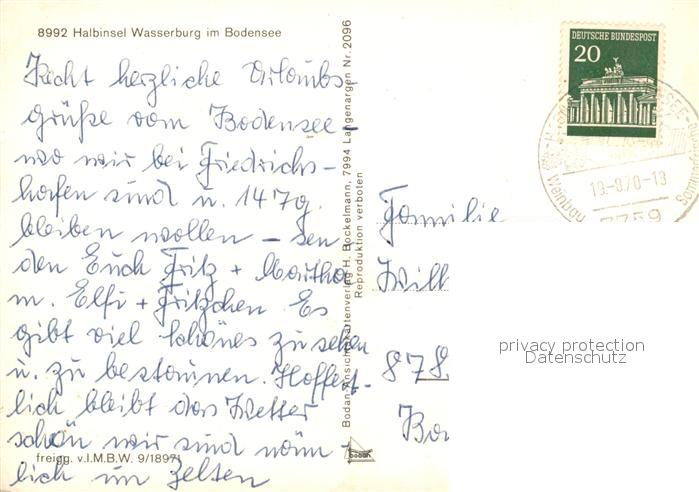 8992 Halbinsel Wasserburg im Bodensee
Recht herzliche Urlaubs-
grüße vom Bodensee -
wo wir bei Friedrichs-
hafen sind u. 14 Tg.
bleiben wollen - sen
den Euch Fritz + Martha
m. Elfi + Fritzchen. Es
gibt viel schönes zu sehen
u. zu bestaunen. Hoffent-
lich bleibt das Wetter
schön wir sind näm -
lich im Zelten
freigg. v.I.M.B.W. 9/18971
Bodan-Ansichtskartenverlag H. Bockelmann, 7994 Langenargen Nr. 2096
Reproduktion verboten
bodan
DEUTSCHE BUNDESPOST
20
19-8.70-13
Weinbau
7759
Familie
Will
878
privacy protection
Datenschutz